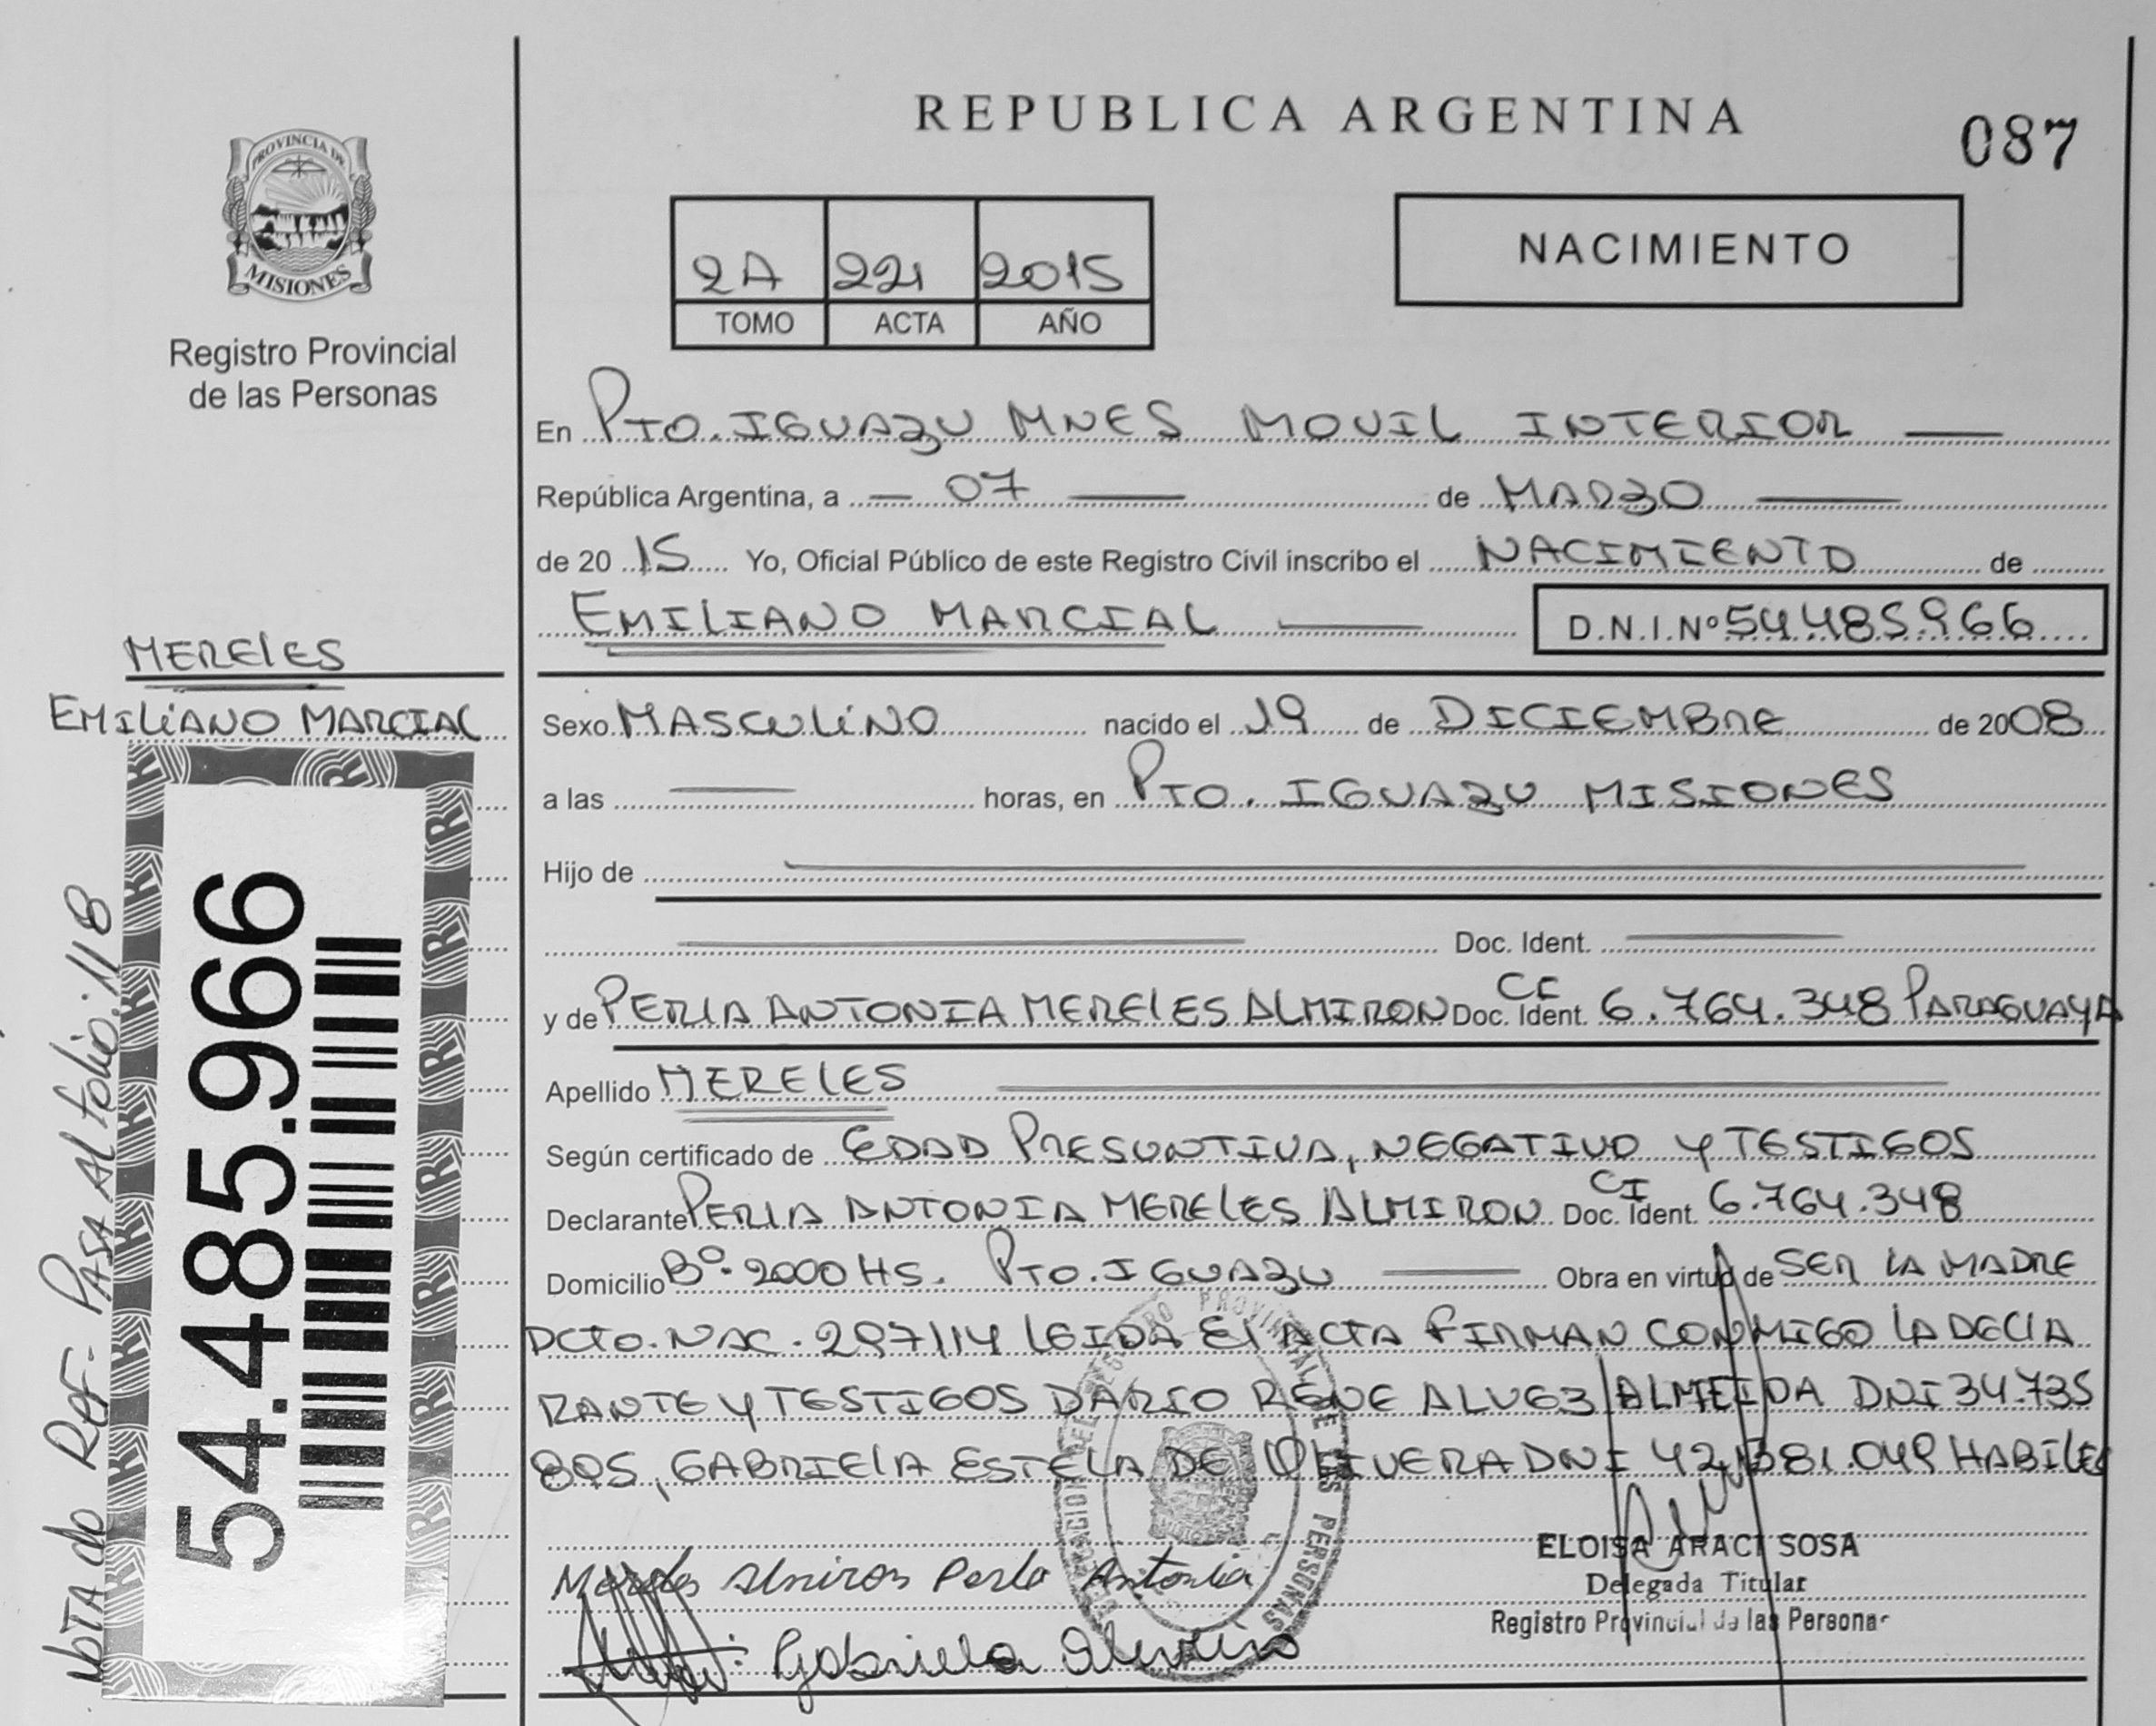 REPUBLICA ARGENTINA
087
PROVINCIA DE
MISIONES
Registro Provincial
de las Personas
2A 221 2015
TOMO ACTA AÑO
NACIMIENTO
En PTO. IGUAZU MNES MOVIL INTERIOR
República Argentina, a 07 de MARZO
de 2015 Yo, Oficial Público de este Registro Civil inscribo el NACIMIENTO de
EMILIANO MARCIAL D.N.I.Nº 54.485.966
MERELES
EMILIANO MARCIAL
Sexo MASCULINO nacido el 19 de DICIEMBRE de 2008
a las horas, en PTO. IGUAZU MISIONES
Hijo de
Doc. Ident.
y de PERLA ANTONIA MERELES ALMIRON Doc. Ident. 6.764.348 PARAGUAYA
Apellido MERELES
Según certificado de EDAD PRESUNTIVA, NEGATIVO Y TESTIGOS
Declarante PERLA ANTONIA MERELES ALMIRON CI Doc. Ident. 6.764.348
Domicilio Bº. 2000 HS. PTO. IGUAZU Obra en virtud de SER LA MADRE
DCTO. NAC. 297/14 LEIDA El ACTA FIRMAN CONMIGO LA DECLA
RANTE Y TESTIGOS DARIO RENE ALVEZ ALMEIDA DNI 34.735
895, GABRIELA ESTELA DE OLIVERA DNI 42.381.049 HABILES
Mereles Almiron Perla Antonia
Gabriela Oliveira
ELOISA ARACI SOSA
Delegada Titular
Registro Provincial de las Personas
54.485.966
NOTA de REF- PASA AL folio: 118